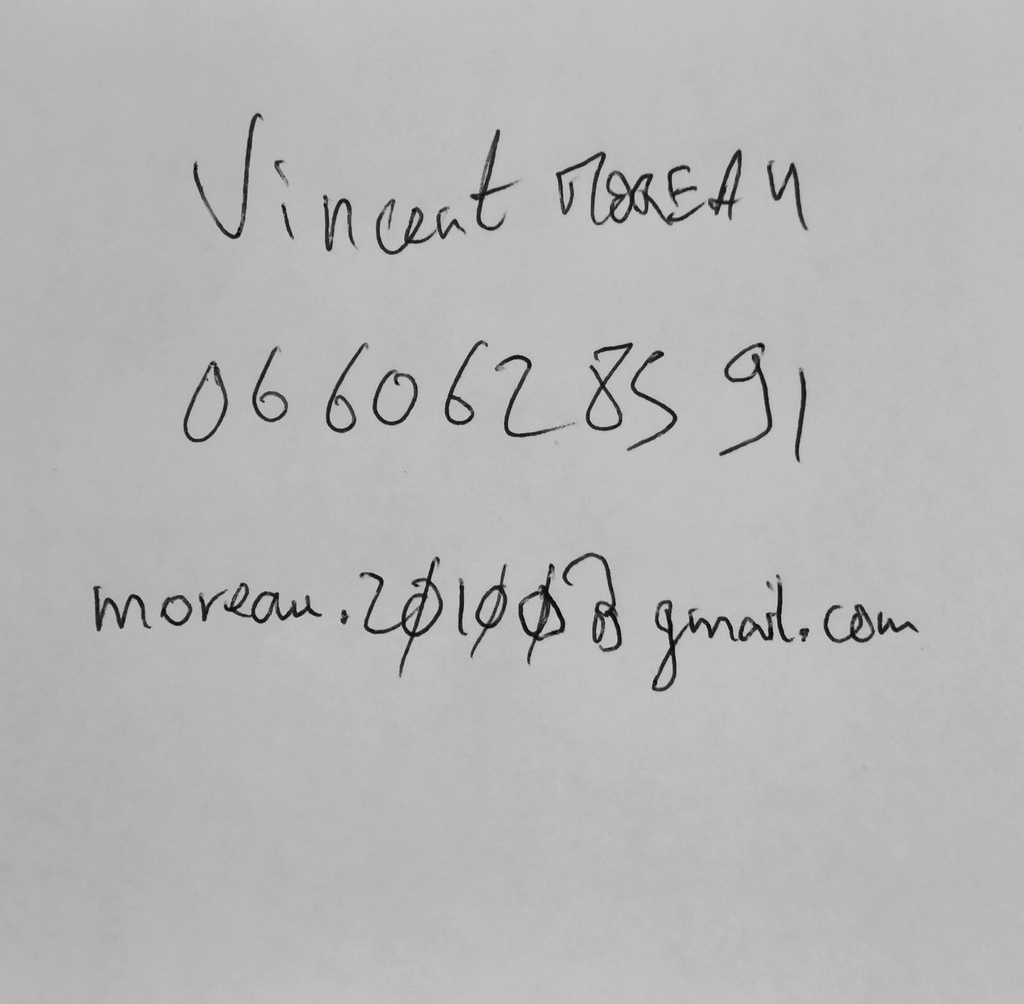 Vincent MOREAU
06 60 62 85 91
moreau.20100@gmail.com